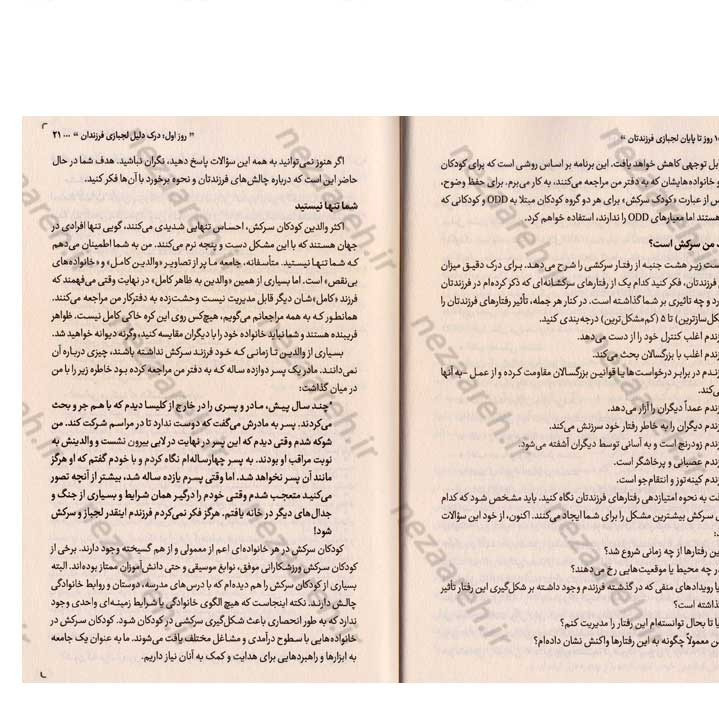 ۱۰ روز تا پایان لجبازی فرزندتان “
ابل توجهی کاهش خواهد یافت. این برنامه بر اساس روشی است که برای کودکان
و خانواده‌هایشان که به دفتر من مراجعه می‌کنند، به کار می‌برم. برای حفظ وضوح،
س از عبارت «کودک سرکش» برای هر دو گروه کودکان مبتلا به ODD و کودکانی که
هستند اما معیارهای ODD را ندارند، استفاده خواهم کرد.
من سرکش است؟
ست زیر هشت جنبه از رفتار سرکشی را شرح می‌دهد. برای درک دقیق میزان
فرزندتان، فکر کنید کدام یک از رفتارهای سرکشانه‌ای که ذکر کرده‌ام در فرزندتان
رد و چه تاثیری بر شما گذاشته است. در کنار هر جمله، تأثیر رفتارهای فرزندتان را
کل‌سازترین) تا ۵ (کم‌مشکل‌ترین) درجه‌بندی کنید.
زندم اغلب کنترل خود را از دست می‌دهد.
زندم اغلب با بزرگسالان بحث می‌کند.
زندم در برابر درخواست‌ها یا قوانین بزرگسالان مقاومت کرده و از عمل -به آنها
ی‌کند.
زندم عمداً دیگران را آزار می‌دهد.
زندم دیگران را به خاطر رفتار خود سرزنش می‌کند.
زندم زودرنج است و به آسانی توسط دیگران آشفته می‌شود.
زندم عصبانی و پرخاشگر است.
زندم کینه‌توز و انتقام‌جو است.
قت به نحوه امتیازدهی رفتارهای فرزندتان نگاه کنید. باید مشخص شود که کدام
ی سرکش بیشترین مشکل را برای شما ایجاد می‌کنند. اکنون، از خود این سؤالات
:
ین رفتارها از چه زمانی شروع شد؟
ر چه محیط یا موقعیت‌هایی رخ می‌دهند؟
یا رویدادهای منفی که در گذشته فرزندم وجود داشته بر شکل‌گیری این رفتار تأثیر
ذاشته است؟
یا تا بحال توانسته‌ام این رفتار را مدیریت کنم؟
ن معمولاً چگونه به این رفتارها واکنش نشان داده‌ام؟
” روز اول: درک دلیل لجبازی فرزندان “ ... ۲۱
اگر هنوز نمی‌توانید به همه این سؤالات پاسخ دهید، نگران نباشید. هدف شما در حال
حاضر این است که درباره چالش‌های فرزندتان و نحوه برخورد با آن‌ها فکر کنید.
شما تنها نیستید
اکثر والدین کودکان سرکش، احساس تنهایی شدیدی می‌کنند، گویی تنها افرادی در
جهان هستند که با این مشکل دست و پنجه نرم می‌کنند. من به شما اطمینان می‌دهم
که شما تنها نیستید. متأسفانه، جامعه ما پر از تصاویر «والدین کامل» و «خانواده‌های
بی‌نقص» است. اما بسیاری از همین «والدین به ظاهر کامل» در نهایت وقتی می‌فهمند که
فرزند «کامل»شان دیگر قابل مدیریت نیست وحشت‌زده به دفترکار من مراجعه می‌کنند.
همانطور که به همه مراجعانم می‌گویم، هیچ‌کس روی این کره خاکی کامل نیست. ظواهر
فریبنده هستند و شما نباید خانواده خود را با دیگران مقایسه کنید، وگرنه دیوانه خواهید شد.
بسیاری از والدین تا زمانی که خود فرزند سرکش نداشته باشند، چیزی درباره آن
نمی‌دانند. مادر یک پسر دوازده ساله که به دفتر من مراجعه کرده بود خاطره زیر را با من
در میان گذاشت:
"چند سال پیش، مادر و پسری را در خارج از کلیسا دیدم که با هم جر و بحث
می‌کردند. پسر به مادرش می‌گفت که دوست ندارد تا در مراسم شرکت کند. من
شوکه شدم وقتی دیدم که این پسر در نهایت در لابی بیرون نشست و والدینش به
نوبت مراقب او بودند. به پسر چهارساله‌ام نگاه کردم و با خودم گفتم که او هرگز
مانند آن پسر نخواهد شد. اما وقتی پسرم یازده ساله شد، بیشتر از آنچه تصور
می‌کنید متعجب شدم وقتی خودم را درگیر همان شرایط و بسیاری از جنگ و
جدال‌های دیگر در خانه یافتم. هرگز فکر نمی‌کردم فرزندم اینقدر لجباز و سرکش
شود!
کودکان سرکش در هر خانواده‌ای اعم از معمولی و از هم گسیخته وجود دارند. برخی از
کودکان سرکش ورزشکارانی موفق، نوابغ موسیقی و حتی دانش‌آموزان ممتاز بوده‌اند. البته
بسیاری از کودکان سرکش را هم دیده‌ام که با درس‌های مدرسه، دوستان و روابط خانوادگی
چالش دارند. نکته اینجاست که هیچ الگوی خانوادگی یا شرایط زمینه‌ای واحدی وجود
ندارد که به طور انحصاری باعث شکل‌گیری سرکشی در کودکان شود. کودکان سرکش در
خانواده‌هایی با سطوح درآمدی و مشاغل مختلف یافت می‌شوند. ما به عنوان یک جامعه
به ابزارها و راهبردهایی برای هدایت و کمک به آنان نیاز داریم.
nezaareh.ir